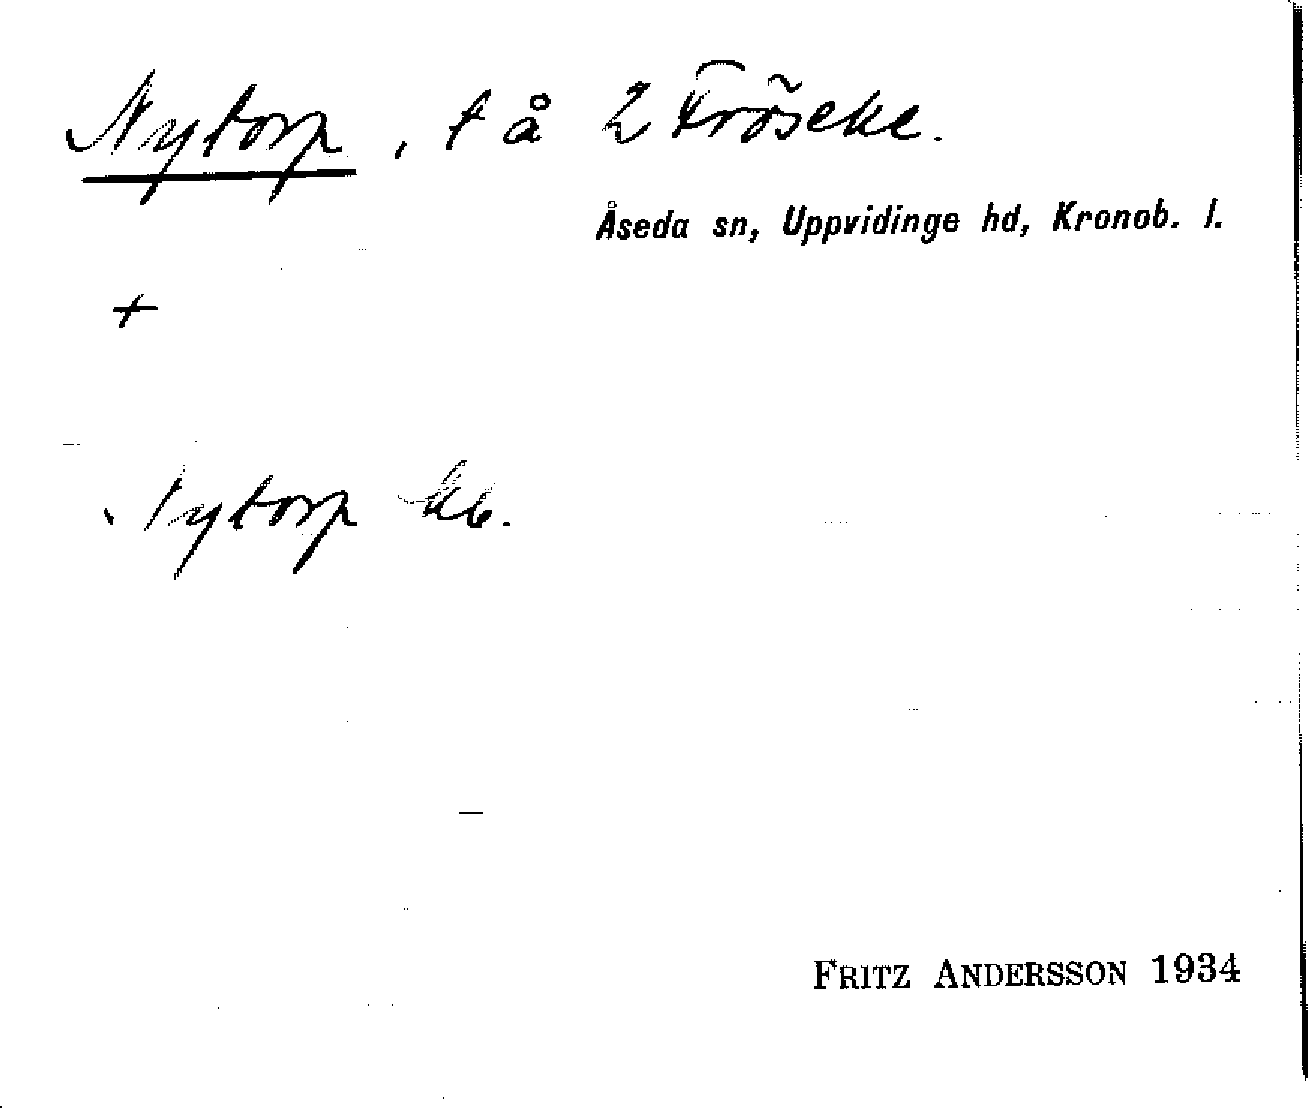 Nytorp, t å 2 Fröseke.
Åseda sn, Uppvidinge hd, Kronob. l.
+
Nytorp kb.
FRITZ ANDERSSON 1934